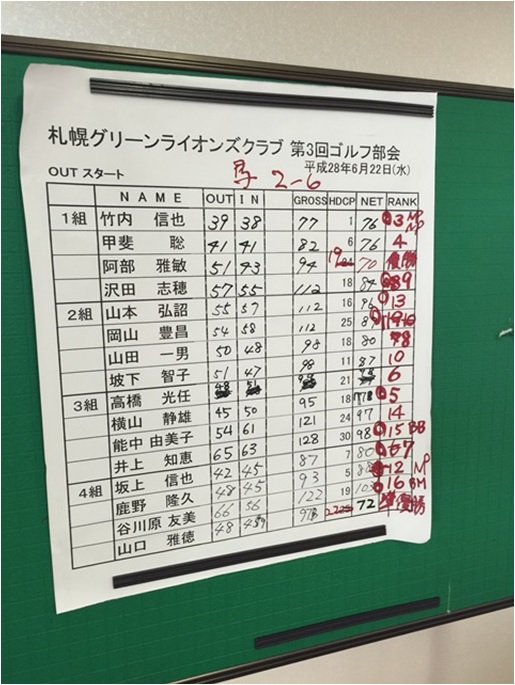 札幌グリーンライオンズクラブ 第3回ゴルフ部会
平成28年6月22日(水)
OUT スタート
2-6
NAME OUT IN GROSS HDCP NET RANK
1組 竹内 信也 39 38 77 1 76 3 NP NP
甲斐 聡 41 41 82 6 76 4
阿部 雅敏 51 43 94 19 70 優勝
沢田 志穂 57 55 112 18 9
2組 山本 弘詔 55 57 112 16 96 13
岡山 豊昌 54 58 112 25
山田 一男 50 48 98 18 80 8
坂下 智子 51 47 98 11 87 10
3組 高橋 光任 21 6
横山 静雄 45 50 95 18 5
能中 由美子 54 61 121 24 97 14
井上 知恵 65 63 128 30 98 15 BB
4組 坂上 信也 42 45 87 7 80 7
鹿野 隆久 48 45 93 5 88 12 NP
谷川原 友美 66 56 122 19 16 BM
山口 雅徳 48 72 準優勝